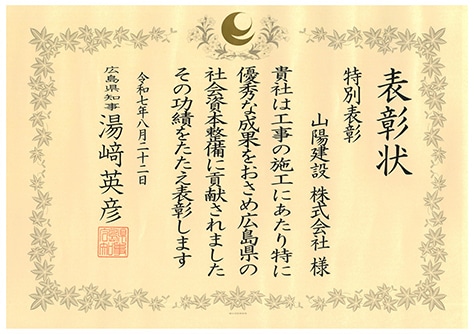 表彰状
特別表彰
山陽建設 株式会社 様
貴社は工事の施工にあたり特に
優秀な成果をおさめ広島県の
社会資本整備に貢献されました
その功績をたたえ表彰します
令和七年八月二十二日
広島県知事 湯﨑英彦